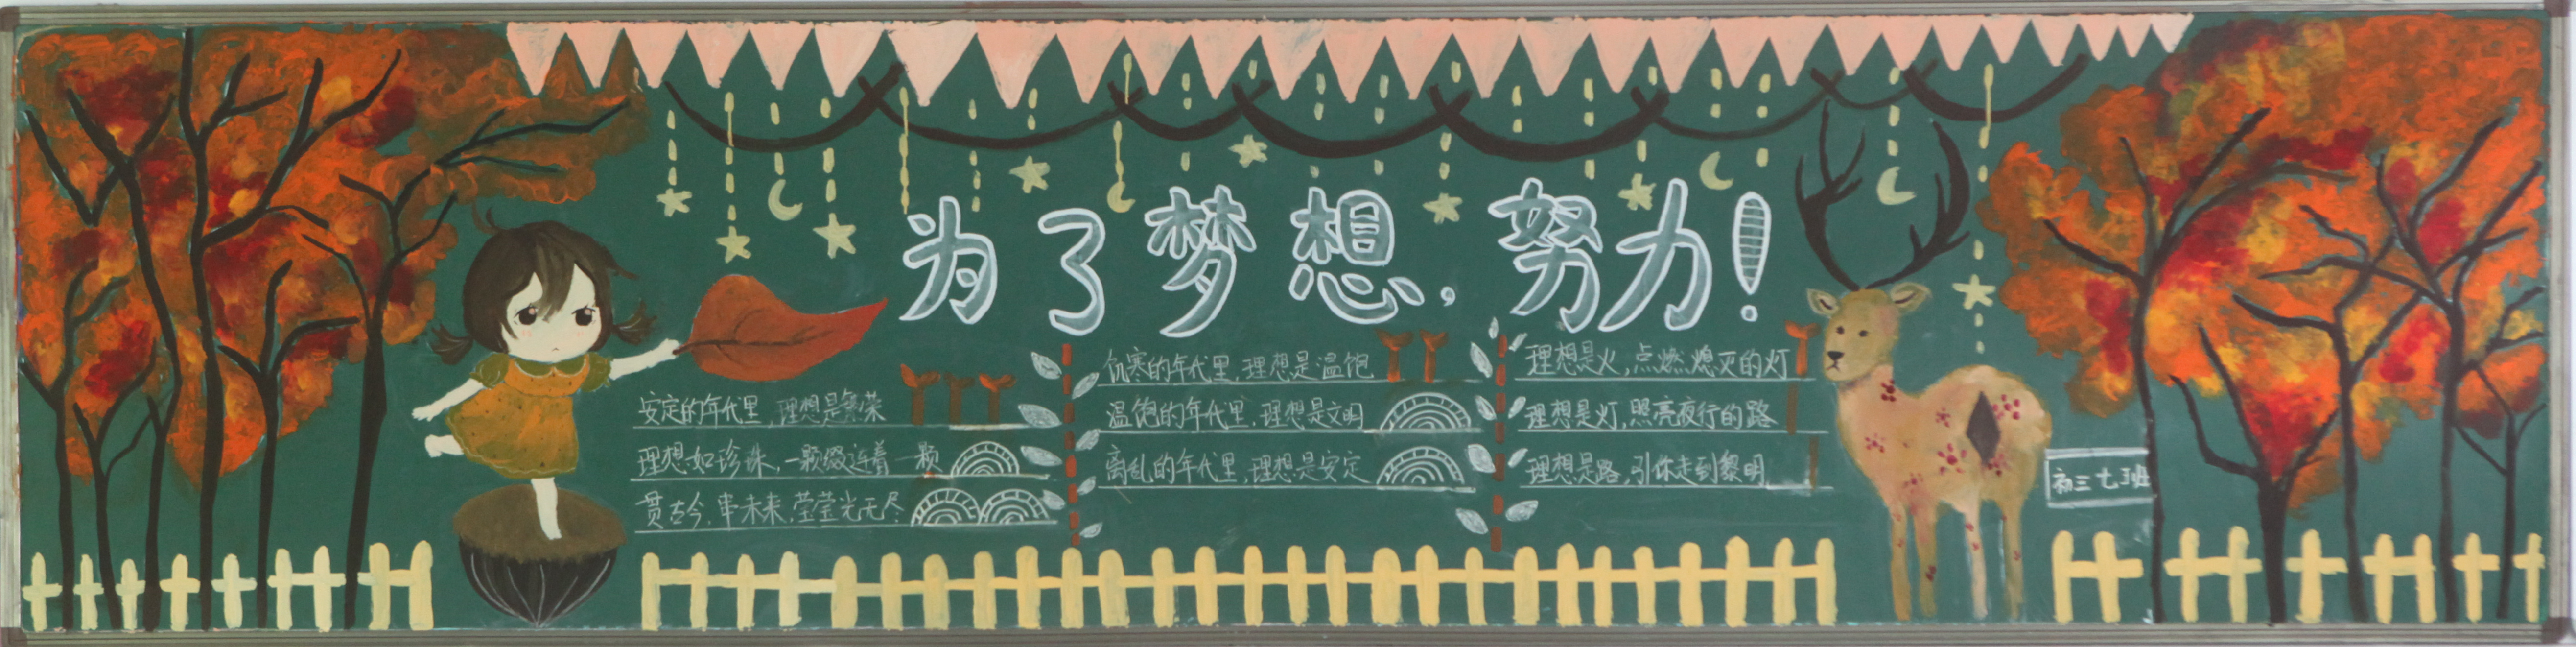 为了梦想,努力!
安定的年代里,理想是繁荣
理想如珍珠,一颗缀连着一颗
贯古今,串未来,莹莹光无尽
饥寒的年代里,理想是温饱
温饱的年代里,理想是文明
离乱的年代里,理想是安定
理想是火,点燃熄灭的灯
理想是灯,照亮夜行的路
理想是路,引你走到黎明
初三七班